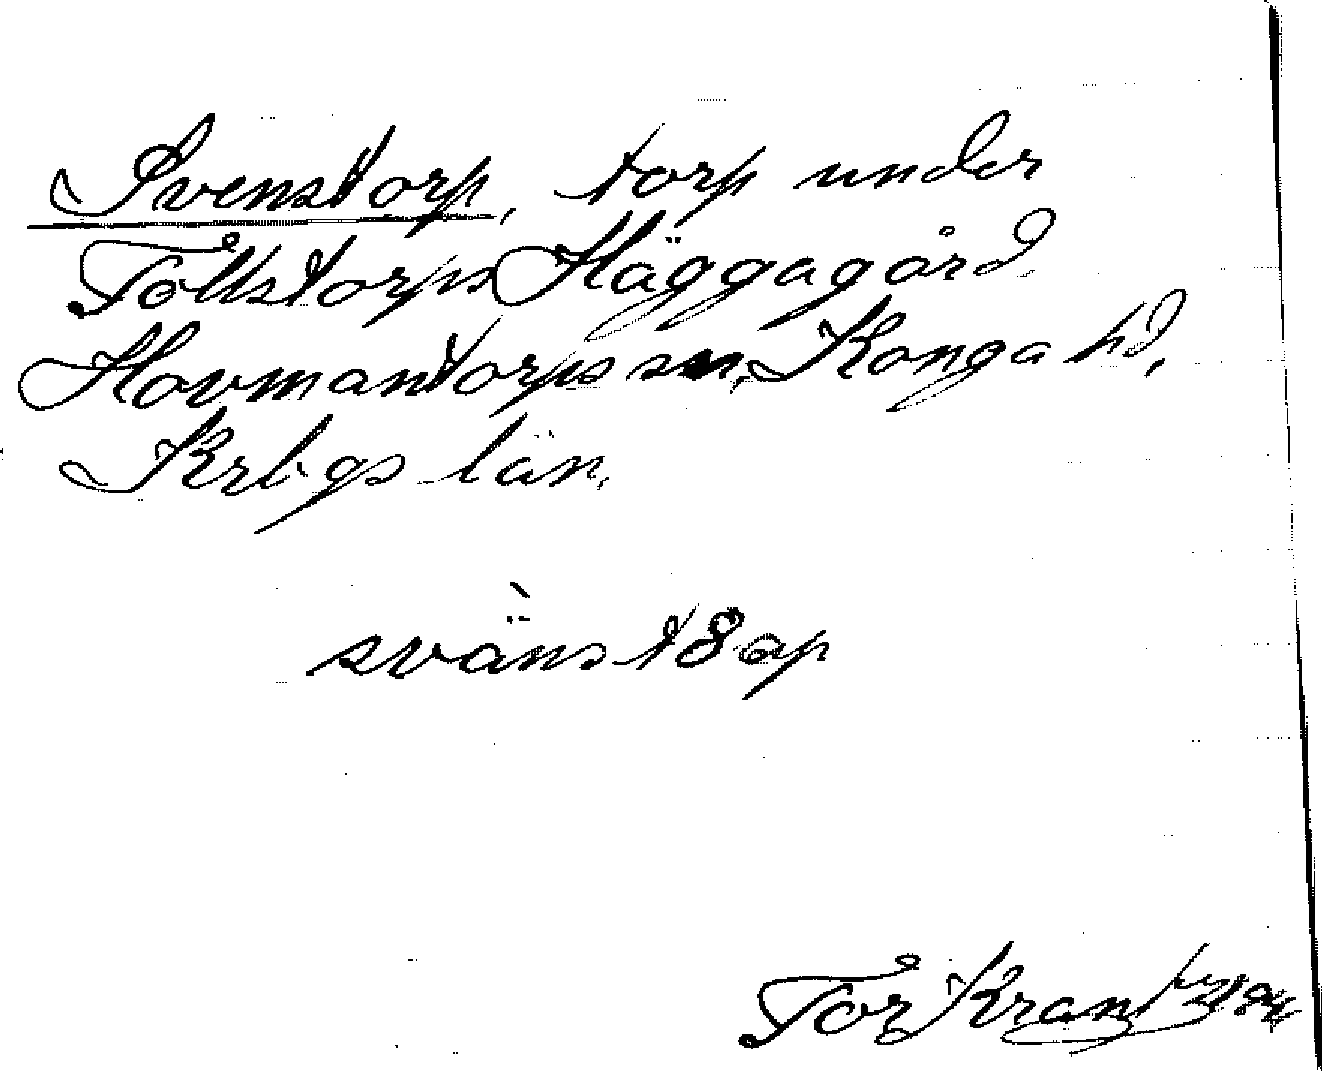 Svenstorp, torp under
Tollstorps Häggagård
Hovmantorps sn, Konga hd,
Krbgs län,
svä̀nst8ap
Tor Krantz